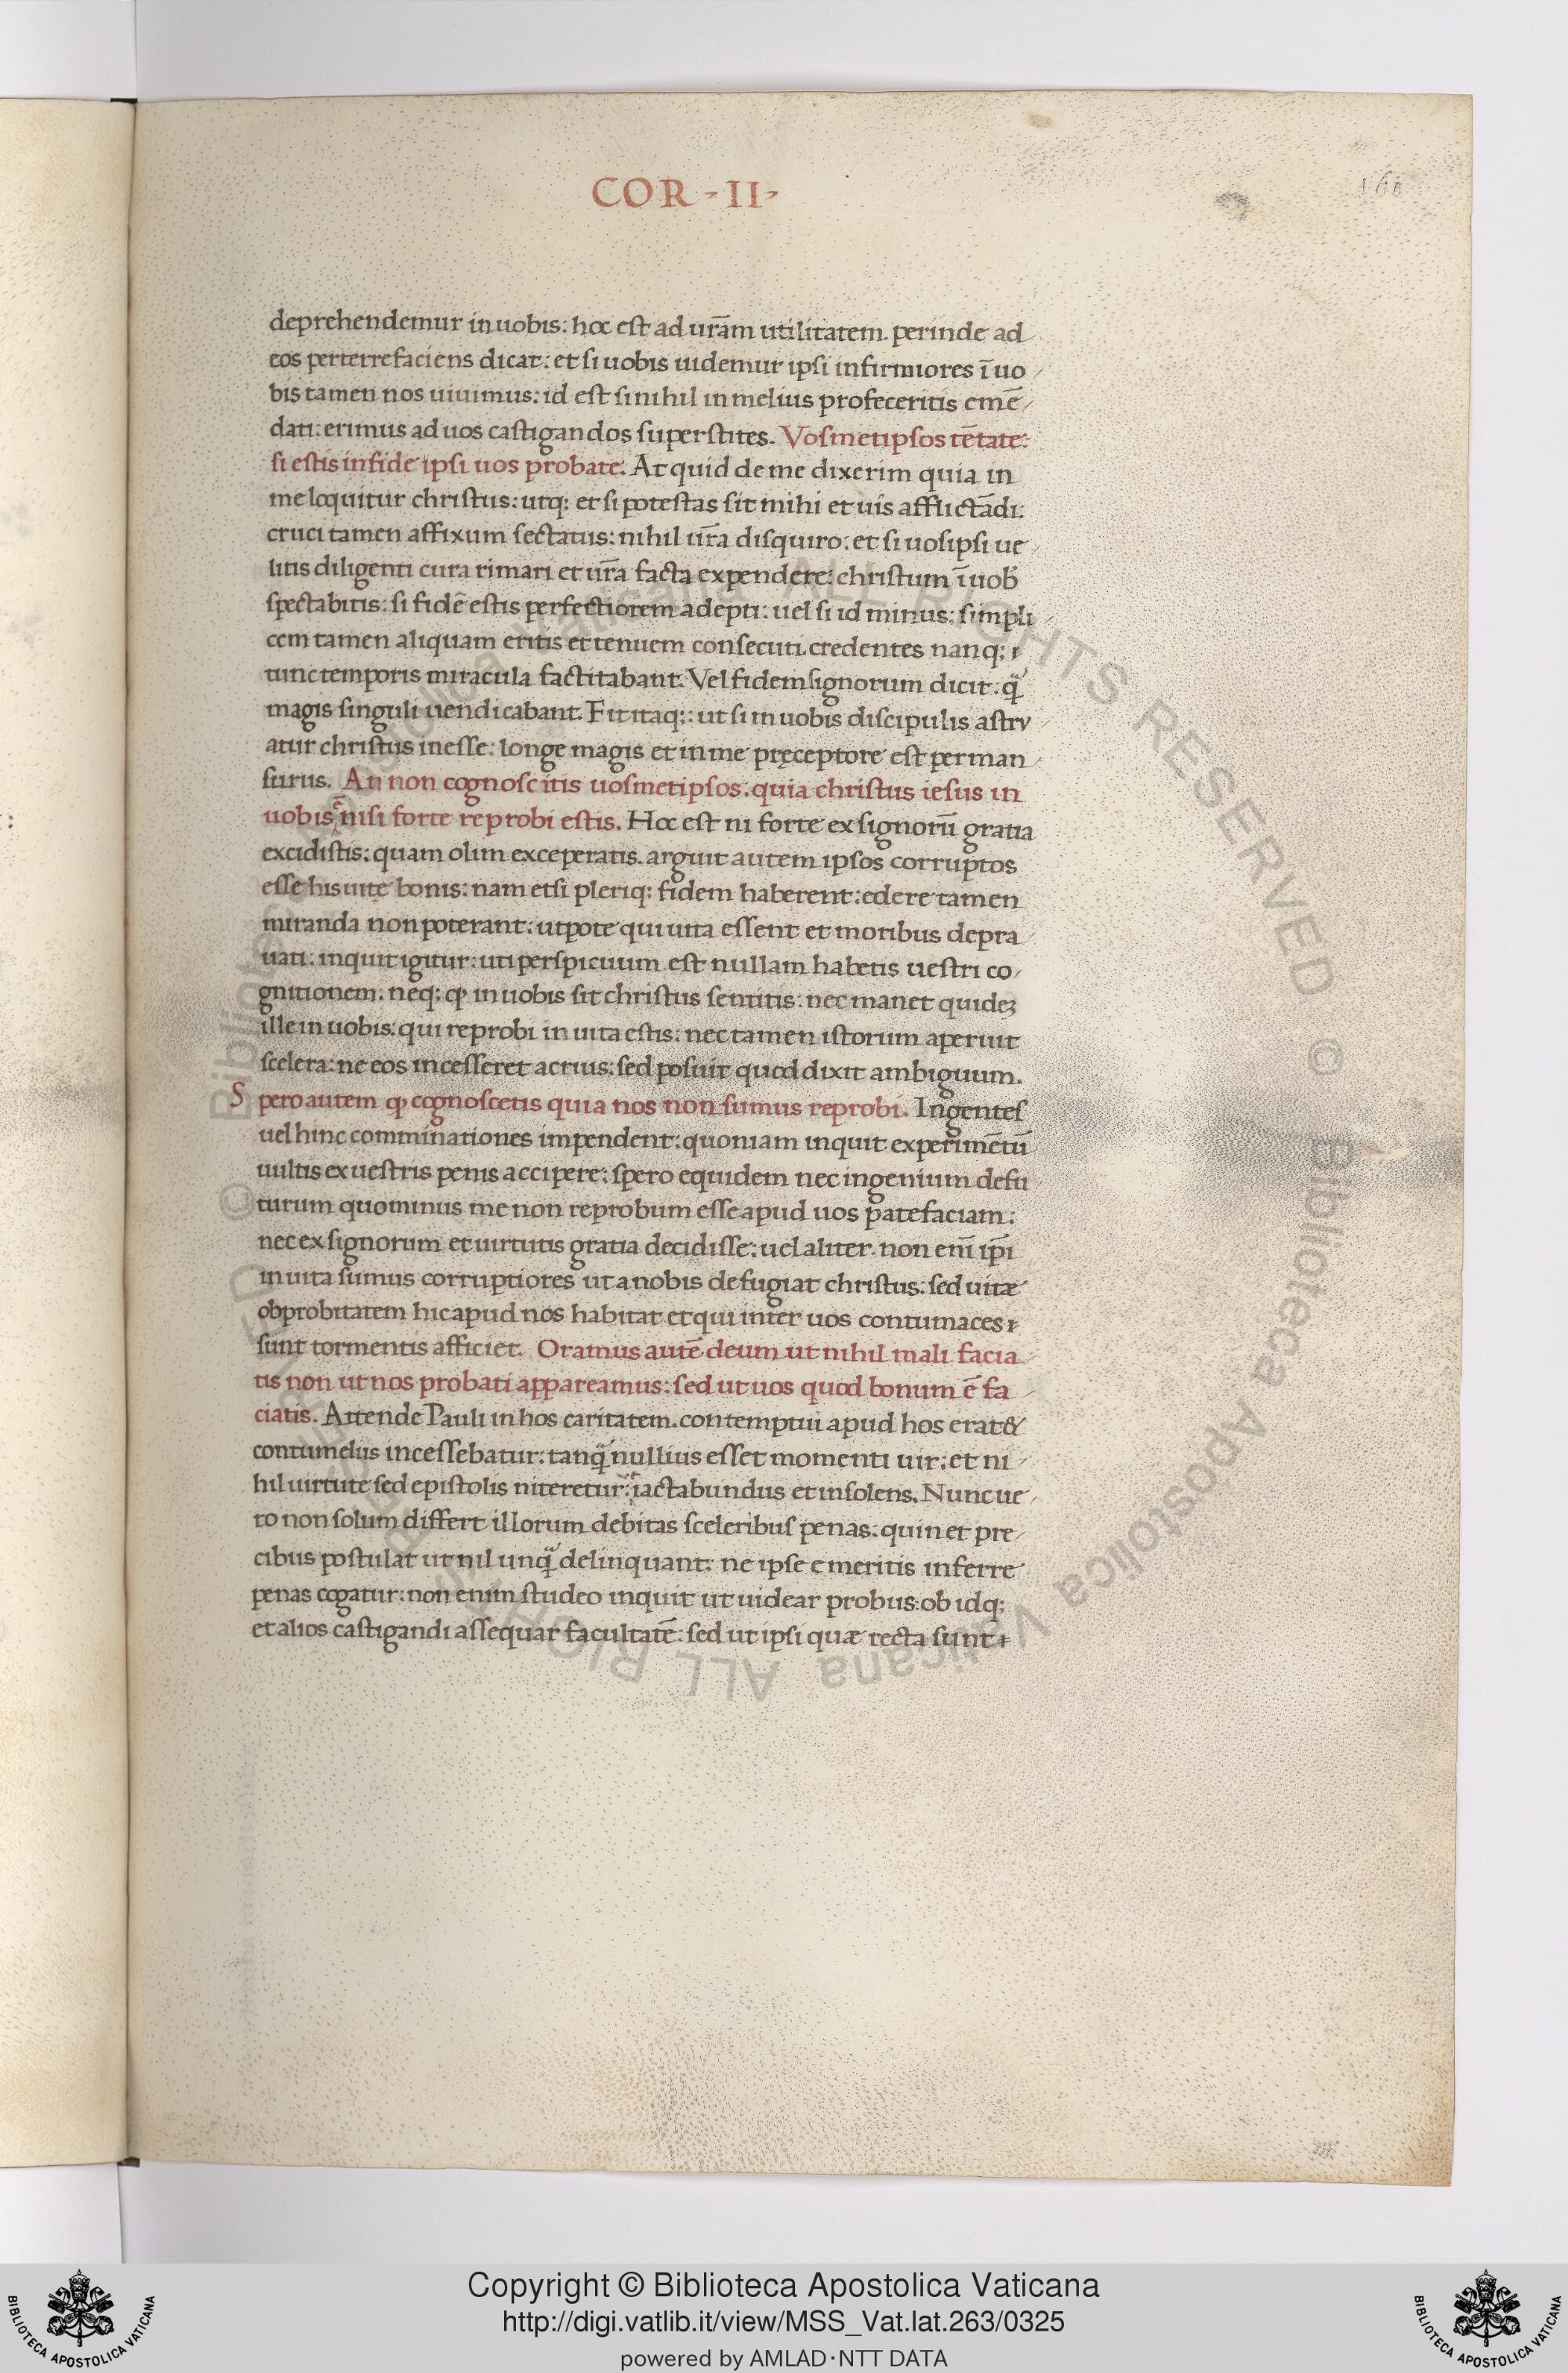 COR - II -
160
deprehendemur in uobis: hoc est ad ur̃am utilitatem. perinde ad
eos perterrefaciens dicat: et si uobis uidemur ipsi infirmiores ĩ uo
bis tamen nos uiuimus: id est si nihil in melius profeceritis emẽ
dati: erimus ad uos castigandos superstites. Vosmetipsos tẽtate:
si estis in fide ipsi uos probate. At quid de me dixerim quia in
me loquitur christus: utq; et si potestas sit mihi et uis afflictãdi:
cruci tamen affixum sectatus: nihil ur̃a disquiro: et si uosipsi ue
litis diligenti cura rimari et ur̃a facta expendere: christum ĩ uob
spectabitis: si fidẽ estis perfectiorem adepti: uel si id minus: simpli
cem tamen aliquam eritis et tenuem consecuti. credentes nanq;
tunc temporis miracula factitabant. Vel fidem signorum dicit: q̃
magis singuli uendicabant. Fit itaq;: ut si in uobis discipulis astru
atur christus inesse: longe magis et in me pręceptore est perman
surus. An non cognoscitis uosmetipsos: quia christus iesus in
uobis ẽ nisi forte reprobi estis. Hoc est ni forte ex signorũ gratia
excidistis: quam olim exceperatis. arguit autem ipsos corruptos
esse his uite bonis: nam etsi pleriq; fidem haberent: edere tamen
miranda non poterant: utpote qui uita essent et moribus depra
uati: inquit igitur: uti perspicuum est nullam habetis uestri co
gnitionem. neq; ꝙ in uobis sit christus sentitis: nec manet quidez
ille in uobis: qui reprobi in uita estis: nec tamen istorum aperuit
scelera: ne eos incesseret acrius: sed posuit quod dixit ambiguum.
Spero autem ꝙ cognoscetis quia nos non sumus reprobi. Ingentes
uel hinc comminationes impendent: quoniam inquit experimẽtũ
uultis ex uestris penis accipere: spero equidem nec ingenium defu
turum quominus me non reprobum esse apud uos patefaciam:
nec ex signorum et uirtutis gratia decidisse: uel aliter. non enĩ ip̃i
in uita sumus corruptiores ut a nobis defugiat christus: sed uitæ
ob probitatem hic apud nos habitat et qui inter uos contumaces
sunt tormentis afficiet. Oramus autẽ deum ut nihil mali facia
tis non ut nos probati appareamus: sed ut uos quod bonum ẽ fa
ciatis. Attende Pauli in hos caritatem. contemptui apud hos erat &
contumeliis incessebatur: tanq̃ nullius esset momenti uir: et ni
hil uirtute sed epistolis niteretur: iactabundus et insolens. Nunc ue
ro non solum differt illorum debitas sceleribus penas: quin et pre
cibus postulat ut nil unq̃ delinquant: ne ipse e meritis inferre
penas cogatur: non enim studeo inquit ut uidear probus: ob idq;
et alios castigandi assequar facultatẽ: sed ut ipsi quæ recta sunt
Copyright © Biblioteca Apostolica Vaticana
http://digi.vatlib.it/view/MSS_Vat.lat.263/0325
powered by AMLAD·NTT DATA
BIBLIOTECA APOSTOLICA VATICANA
BIBLIOTECA APOSTOLICA VATICANA